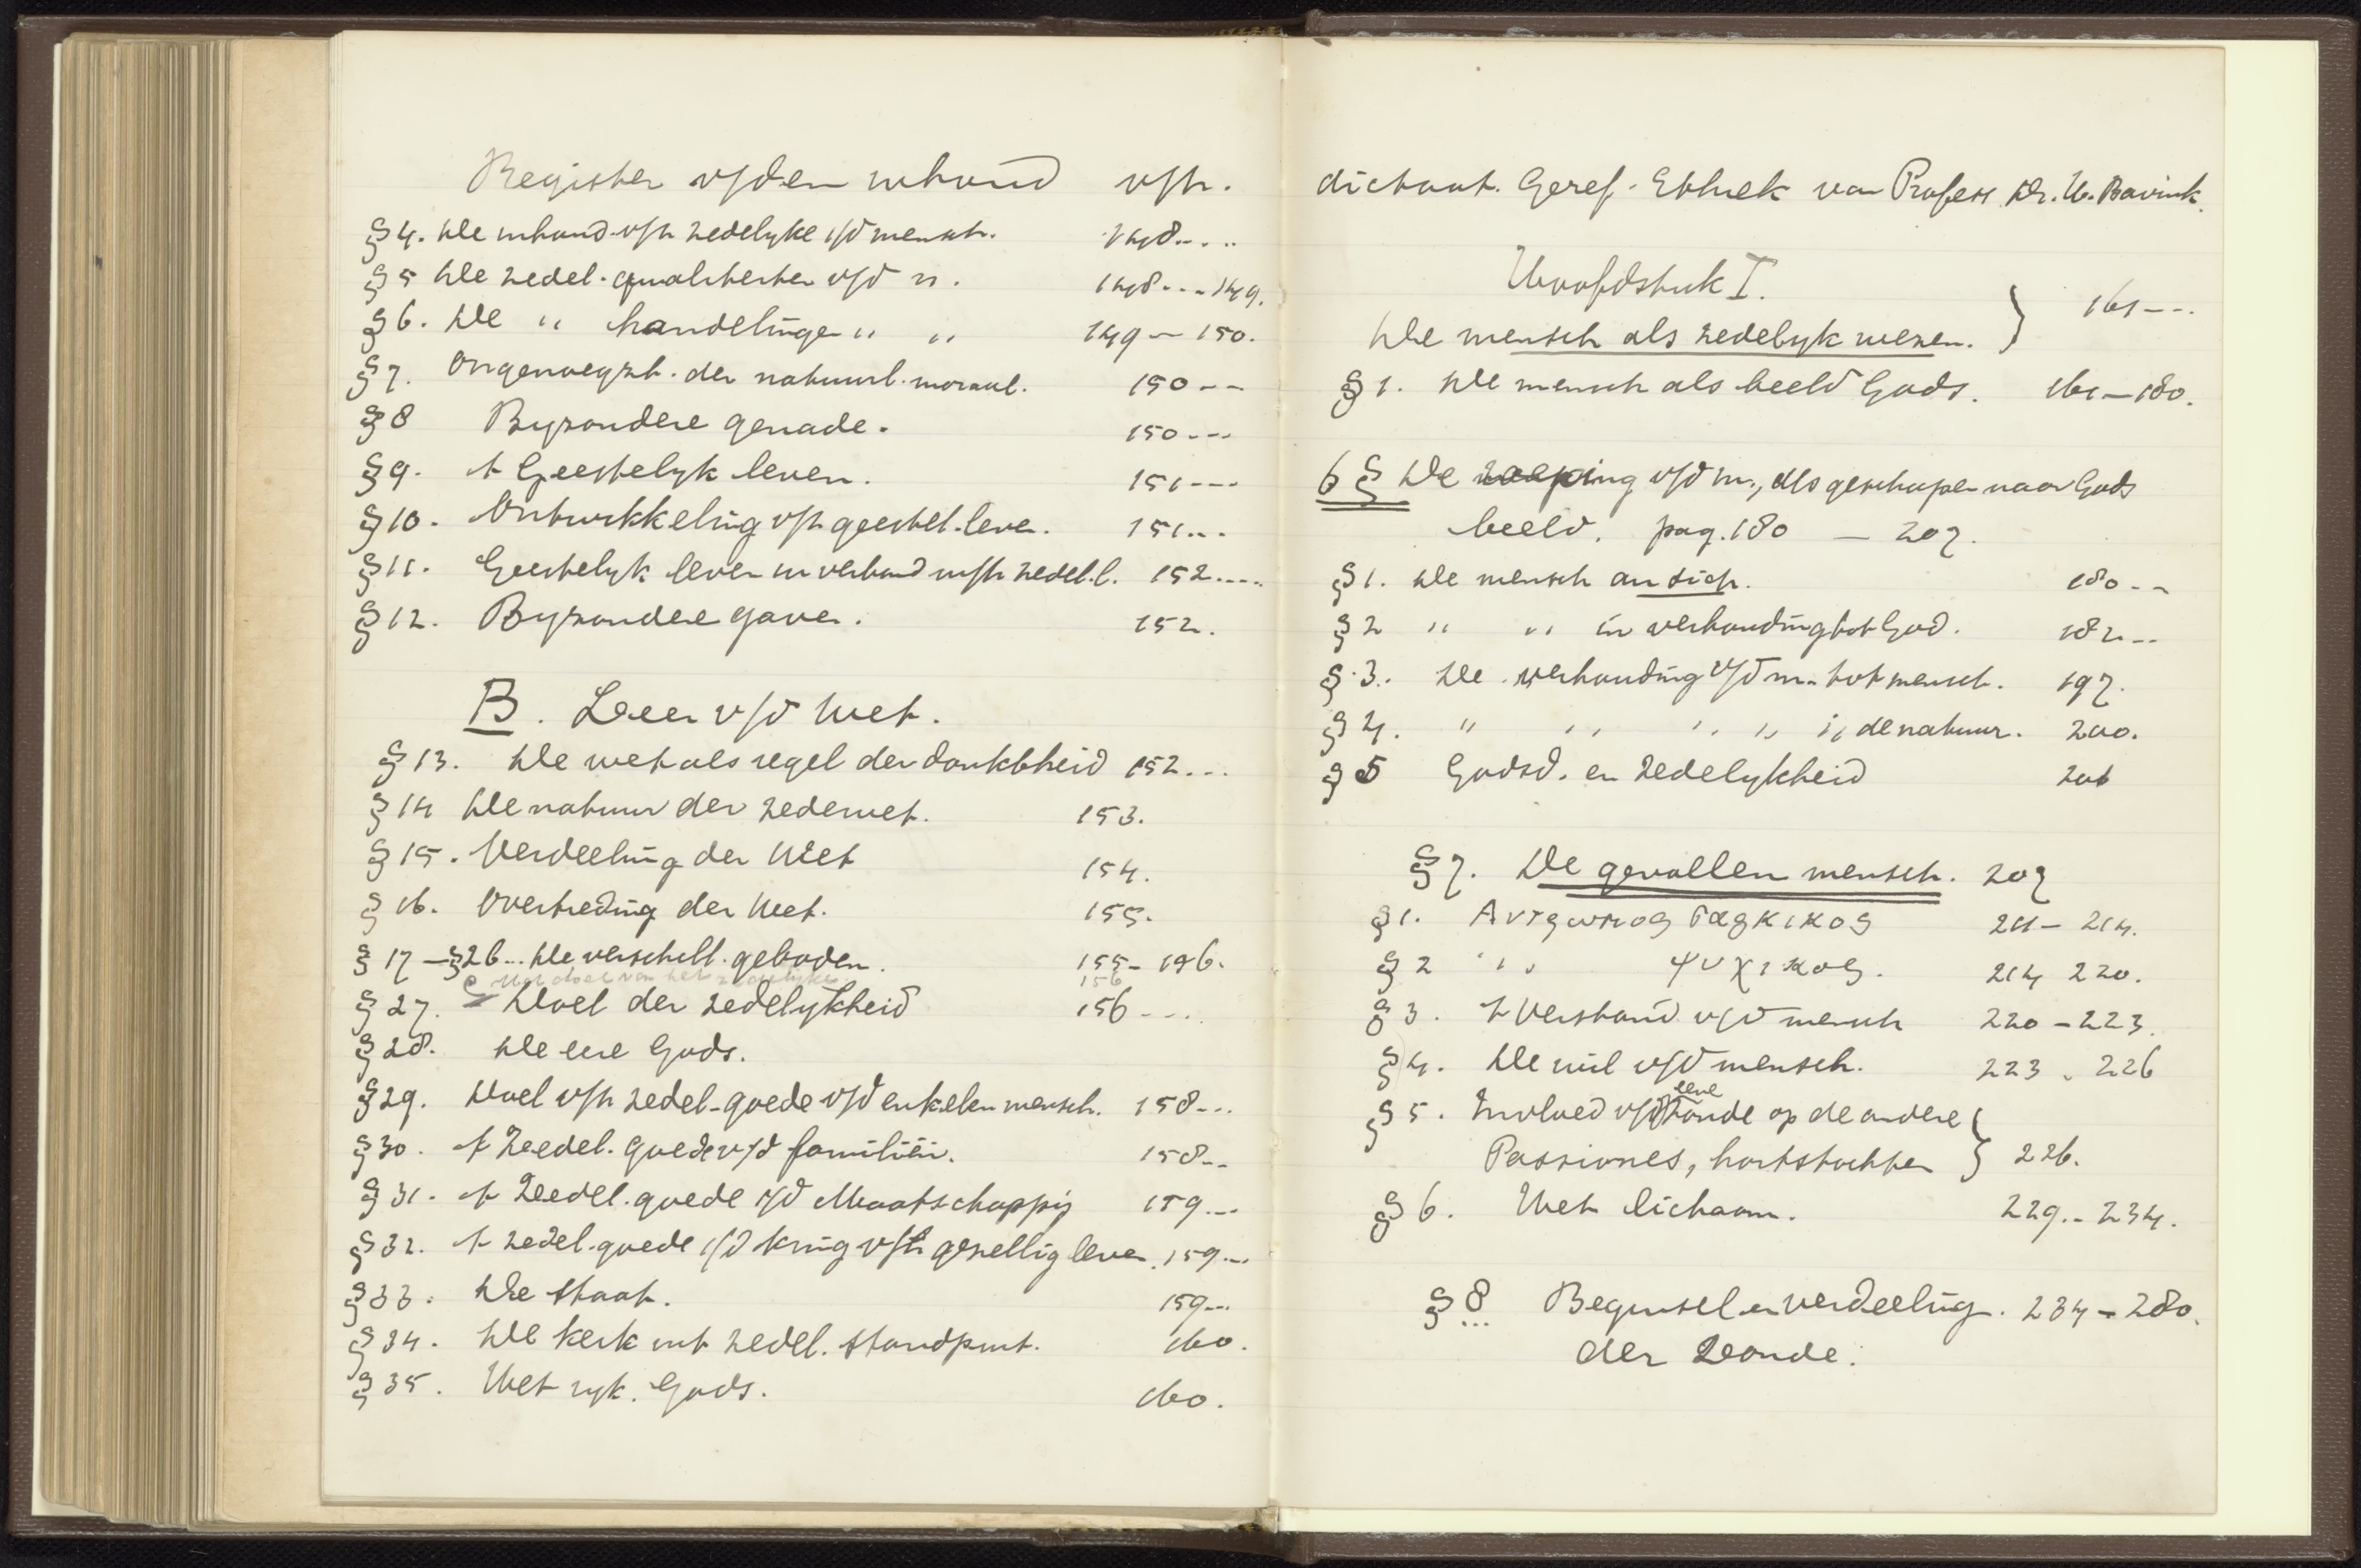 Register v/den inhoud v/h.
§ 4. De inhoud v/h zedelyke i/d mensch. 148....
§ 5 De zedel. qualiteiten v/d m. 148...149.
§ 6. De " handelingen " " 149 - 150.
§ 7. Ongenoegzh. der natuurl. moraal. 150--
§ 8 Byzondere genade. 150---
§ 9. 't Geestelyk leven. 151---
§ 10. Ontwikkeling v/h geestel. leven. 151...
§ 11. Geestelyk leven in verband m/h zedel. l. 152....
§ 12. Byzondere gaven. 152.
B. Leer v/d Wet.
§ 13. De wet als regel der dankbheid 152...
§ 14 De natuur der zedewet. 153.
§ 15. Verdeeling der Wet 154.
§ 16. Overtreding der Wet. 155.
§ 17 - § 26... De verschill. geboden. 155 - 156.
C Het doel van het zedelyke 156
§ 27. Doel der zedelykheid 156 ....
§ 28. De eere Gods.
§ 29. Doel v/h zedel. goede v/d enkelen mensch. 158...
§ 30. 't Zeedel. goede v/d familiën. 158..
§ 31. 't Zeedel. goede i/d Maatschappij 159...
§ 32. 't zedel. goede i/d kring v/h gezellig leven. 159...
§ 33. De staat. 159...
§ 34. De kerk uit zedel. standpunt. 160.
§ 35. Het ryk. Gods. 160.
dictaat. Geref. Ethiek van Profess. Dr. H. Bavink.
Hoofdstuk I.
De mensch als zedelyk wezen. } 161---.
§ 1. De mensch als beeld Gods. 161 - 180.
6 § De roeping v/d m., als geschapen naar Gods
beeld. pag. 180 - 207.
§ 1. De mensch an sich. 180--
§ 2 " " in verhouding tot God. 182--
§ 3. De verhouding v/d m. tot mensch. 197.
§ 4. " " " " " de natuur. 200.
§ 5 Godsd. en zedelykheid 206
§ 7. De gevallen mensch. 207
§ 1. Αντρωπος σαρκικος 211 - 214.
§ 2 " " ψυχικος. 214 220.
§ 3. 't Verstand v/d mensch 220 - 223.
§ 4. De wil v/d mensch. 223 . 226
§ 5. Invloed v/d eene zonde op de andere
Passiones, hartstochten } 226.
§ 6. Het lichaam. 229.. 234.
§ 8 Beginsel en verdeeling. 234 - 280.
der Zonde.